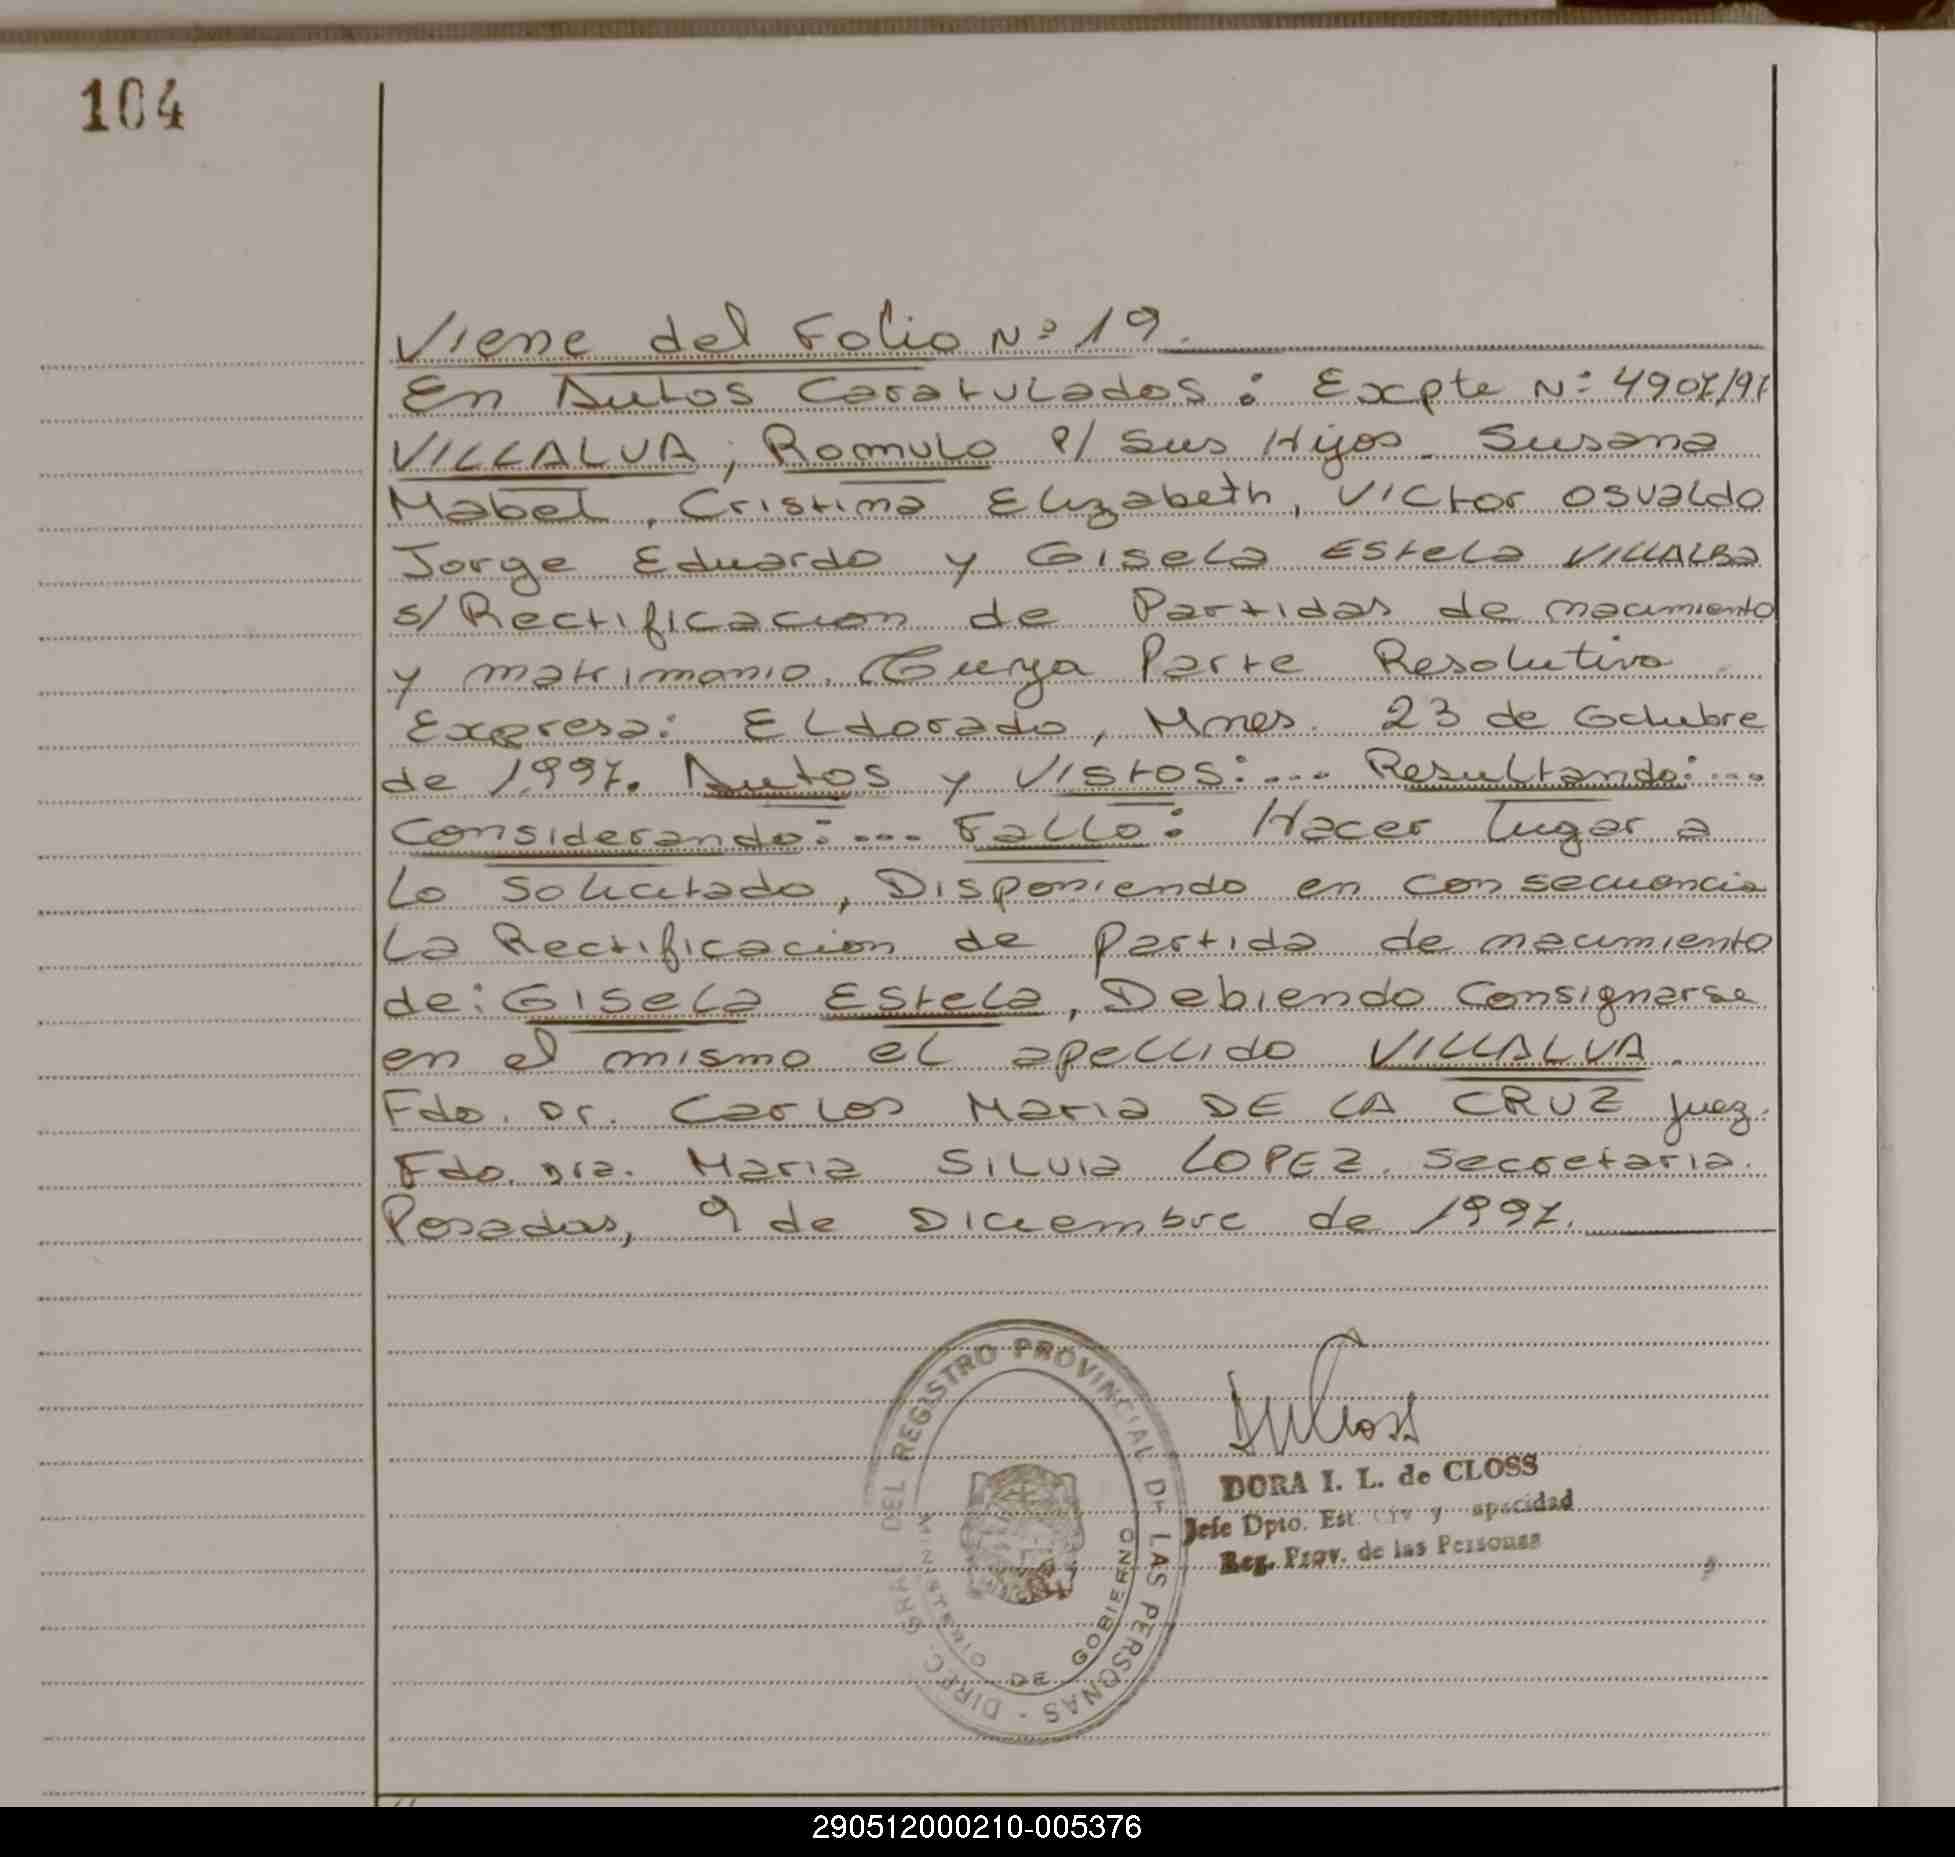 104
Viene del Folio Nº 19.
En Autos Caratulados: Expte Nº 4907/97
VILLALVA, Romulo P/ Sus Hijos Susana
Mabel, Cristina Elizabeth, Victor Osvaldo
Jorge Eduardo y Gisela Estela VILLALBA
s/Rectificacion de Partidas de nacimiento
y matrimonio. Cuya Parte Resolutiva
Expresa: Eldorado, Mnes. 23 de Octubre
de 1.997. Autos y Vistos:... Resultando:...
Considerando:... Fallo: Hacer lugar a
lo Solicitado, Disponiendo en consecuencia
la Rectificacion de Partida de nacimiento
de: Gisela Estela, Debiendo Consignarse
en el mismo el apellido VILLALVA.
Fdo. Dr. Carlos Maria DE LA CRUZ Juez.
Fdo. Dra. Maria Silvia LOPEZ. Secretaria.
Posadas, 9 de Diciembre de 1997.
DIREC. GRAL. DEL REGISTRO PROVINCIAL DE LAS PERSONAS -
MINISTERIO DE GOBIERNO
DORA I. L. de CLOSS
Jefe Dpto. Est. Civ y apacidad
Reg. Prov. de las Personas
290512000210-005376